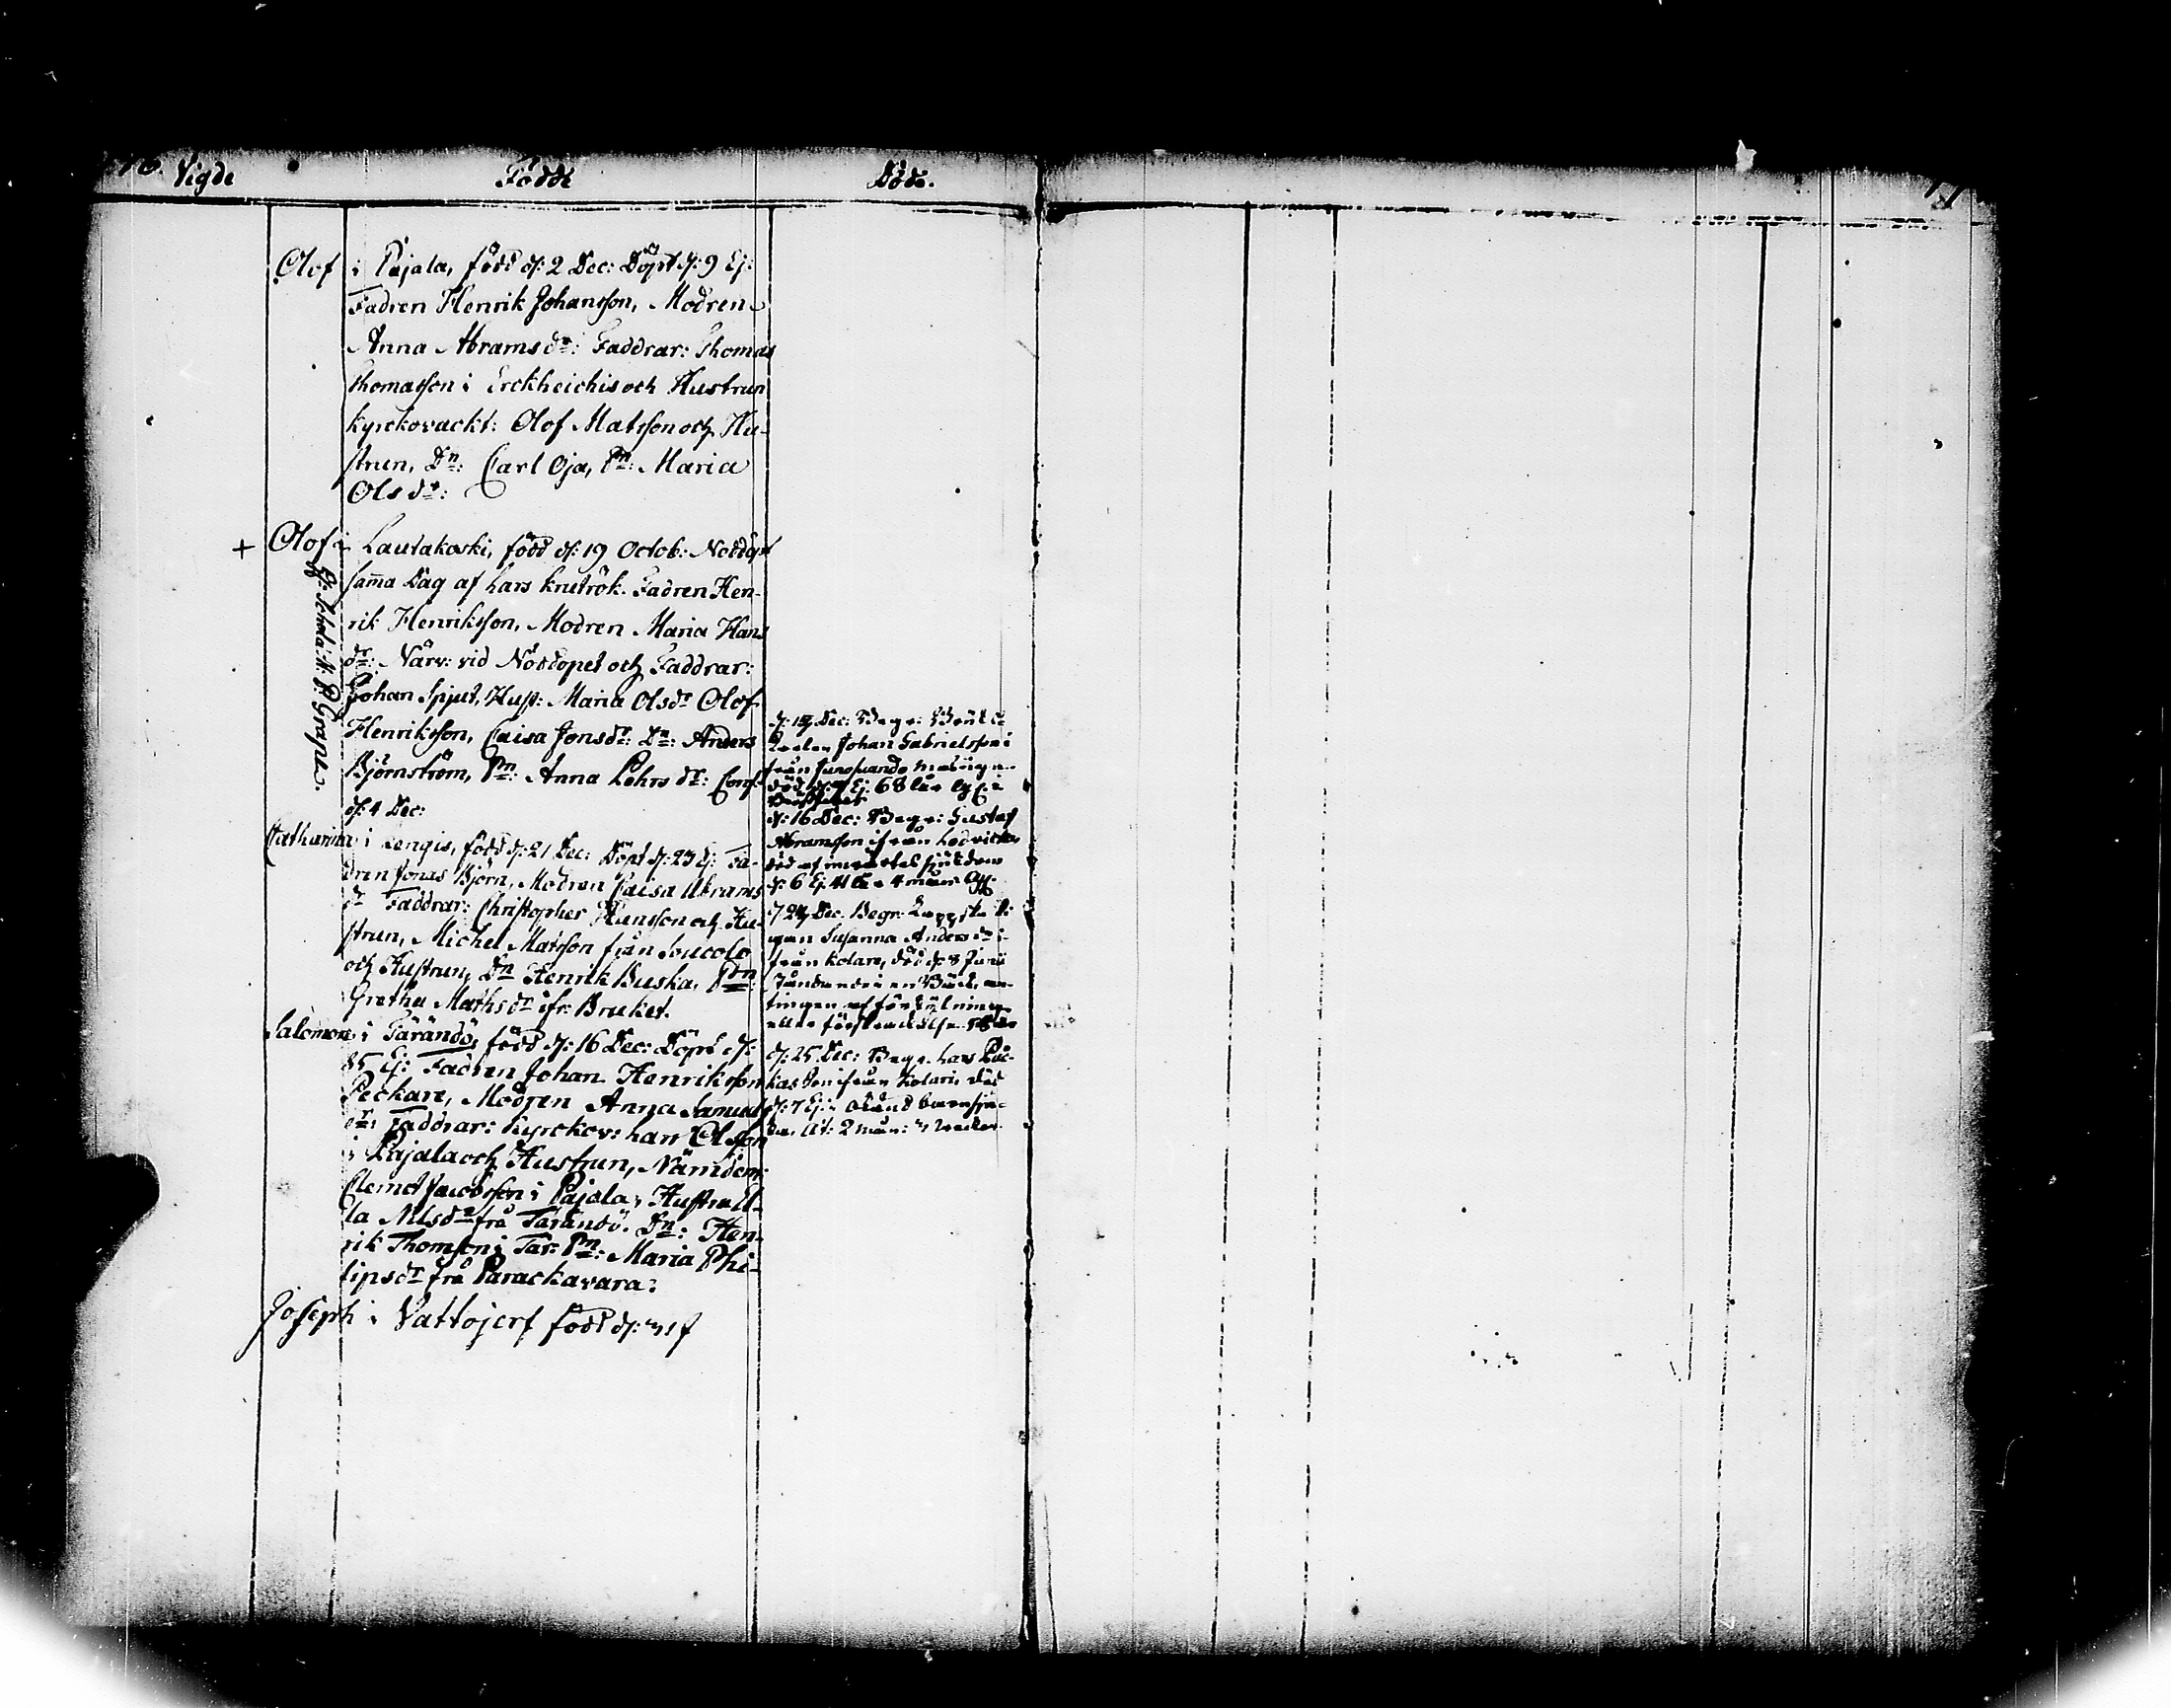 Vigde
Födde
Döde.
Olof i Pajala, född d: 2 Dec: Döpt d: 9 Ej:
Fadren Henrik Johansson, Modren
Anna Abrams dr: Faddrar: Thomas
Thomasson i Erckheickis och Hustrun
kyrckovackt: Olof Matsson och Hu-
strun, Dn: Carl Oja, Pn: Maria
Ols dr:
+ Olof i Lautakoski, född d: 19 Octob: Nöddöpt
sam̄a Dag af Lars knutrök. Fadren Hen-
rik Henriksson, Modren Maria Hans
dr: Närv: vid Nöddopet och Faddrar:
Johan Spjut, Hust: Maria Olsdr Olof
Henriksson, Caisa Jonsdr: Dn: Anders
Björnström, Pn: Anna Lehrs dr: Conf:
d: 4 Dec:
Grape.
Catharina i Kengis, född d: 21 Dec: Döpt d: 23 Ej: Fa-
dren Jonas Björn, Modren Caisa Abrams
dr Faddrar: Christopher Hansson och Hu-
strun, Michel Matsson från
och Hustrun, Dn Henrik Buska, Pn:
Gretha Mathsdr ifr: Bruket.
Salomon i Tärändö, född d: 16 Dec: Döpt d:
25 Ej: Fadren Johan Henriksson
Peckare, Modren Anna Samuels
dr: Faddrar: kyrckov: Lars Olsson
i Pajala och Hustrun, Nämdem:
Clemet Jacobsson i Pajala, Hustru El-
la Nilsdr frå Tärändö. Dn: Hen-
rik Thomson i Tär: Pn: Maria Phi-
lipsdr frå Parackavara:
Joseph i Vattojerf född d:
Dec: Begr:
Johan Gabrielsson i
från Junosuando
död Ej: 68 åar
d: 16 Dec: Begr: Gustaf
Abramsson ifrån
död af
d: 6 Ej: 41 4 mån:
Dec. Begr.
Susanna Anders dr i-
från Kolare, död d: 8 Junii
en
tingen af förkylning
eller
d: 25 Dec: Begr. Lars
ifrån Kolare, död
d: 7 Ej: okänd barnsju-
2 mån: veckor.